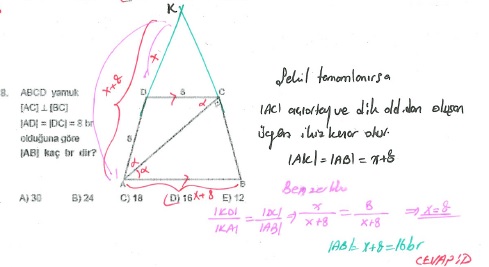 K
x+8
x
D 8 C
α
8. ABCD yamuk
[AC] ⊥ [BC]
|AD| = |DC| = 8 br
olduğuna göre
|AB| kaç br dir?
8
α
α
A B
x+8
A) 30 B) 24 C) 18 D) 16 E) 12
Şekil tamamlanırsa
|AC| açıortay ve dik old.dan oluşan
üçgen ikizkenar olur.
|AK| = |AB| = x+8
Benzerlik
|KD| / |KA| = |DC| / |AB| ⇒ x / x+8 = 8 / x+8 ⇒ x=8
|AB| = x+8 = 16 br
CEVAP D